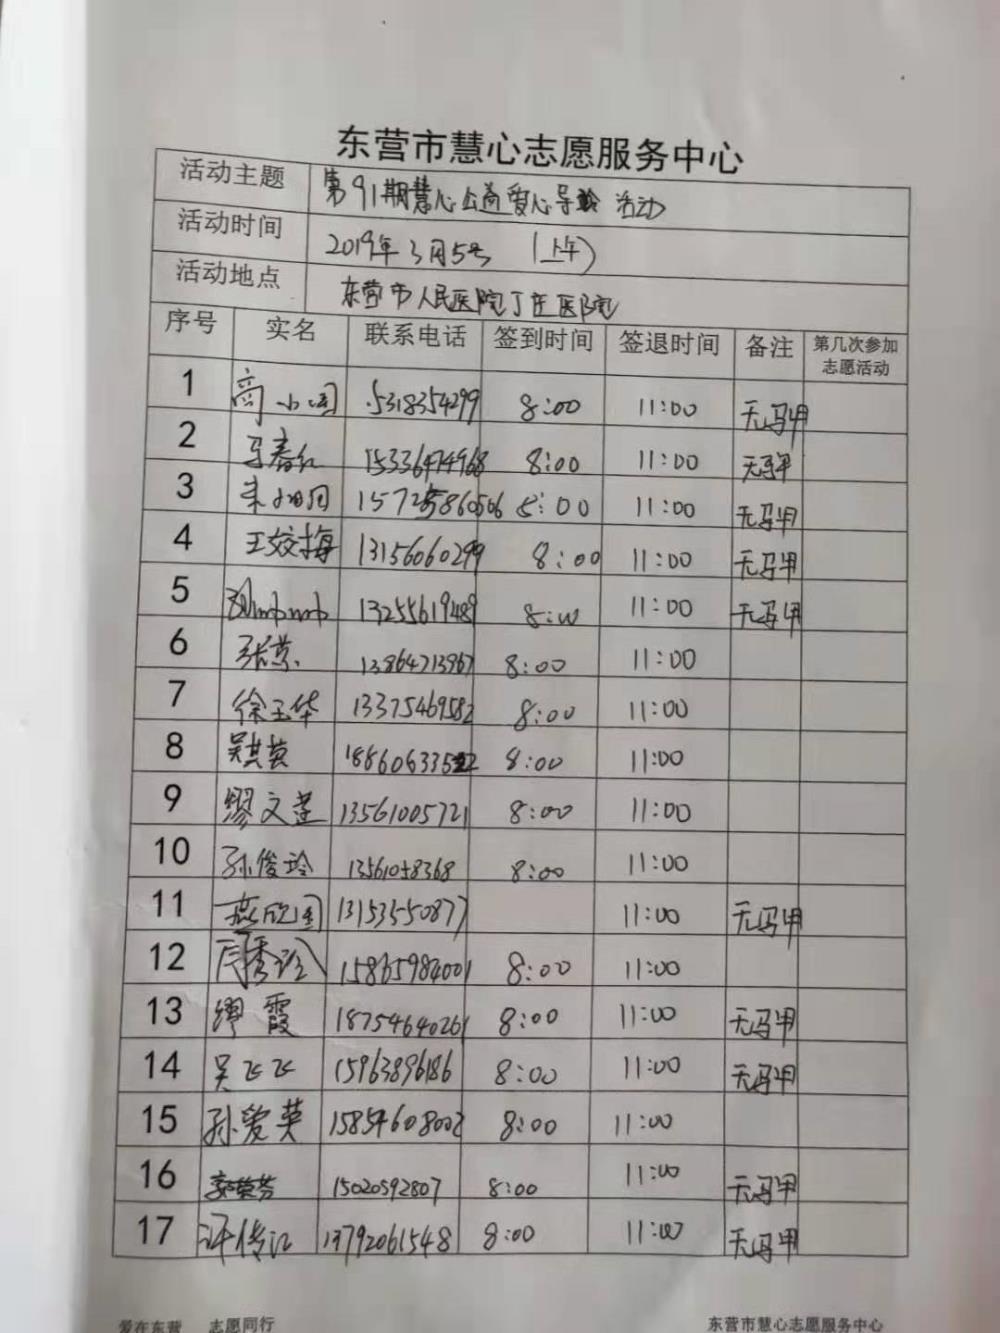 东营市慧心志愿服务中心
活动主题 第91期慧心公益爱心导诊活动
活动时间 2019年3月5号 (上午)
活动地点 东营市人民医院丁庄医院
序号 实名 联系电话 签到时间 签退时间 备注 第几次参加志愿活动
1 5318354299 8:00 11:00 无马甲
2 马春红 15336474968 8:00 11:00 无马甲
3 8:00 11:00 无马甲
4 王姣梅 13156060299 8:00 11:00 无马甲
5 13255619489 8:00 11:00 无马甲
6 张燕 13864713967 8:00 11:00
7 徐玉华 13375469582 8:00 11:00
8 吴其英 8:00 11:00
9 缪文莲 13561005721 8:00 11:00
10 孙俊玲 8:00 11:00
11 燕欣国 13153550877 11:00 无马甲
12 闫秀玲 15865984001 8:00 11:00
13 缪霞 18754640261 8:00 11:00 无马甲
14 吴飞飞 15963896186 8:00 11:00 无马甲
15 孙爱英 15854608002 8:00 11:00
16 15020592807 8:00 11:00 无马甲
17 许传江 13792061548 8:00 11:00 无马甲
爱在东营 志愿同行 东营市慧心志愿服务中心